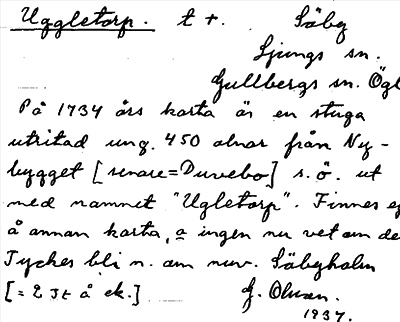 Uggletorp. t +. Säby
Ljungs sn.
Gullbergs sn. Ögl
På 1734 års karta är en stuga
utritad ung. 450 alnar från Ny-
bygget [senare=Duvebo] s.ö. ut
med namnet "Ugletorp". Finnes ej
å annan karta, o ingen nu vet om de
Tyckes bli n. om nuv. Säbyholm
[= 2 st å ek.] G. Olsson.
1937.